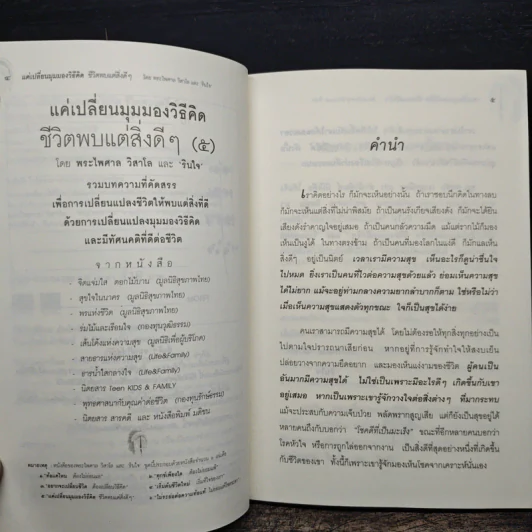 แค่เปลี่ยนมุมมองวิธีคิด ชีวิตพบแต่สิ่งดีๆ โดย พระไพศาล วิสาโล และ 'รินใจ'
แค่เปลี่ยนมุมมองวิธีคิด
ชีวิตพบแต่สิ่งดีๆ (๕)
โดย พระไพศาล วิสาโล และ 'รินใจ'
รวมบทความที่คัดสรร
เพื่อการเปลี่ยนแปลงชีวิตให้พบแต่สิ่งที่ดี
ด้วยการเปลี่ยนแปลงมุมมองวิธีคิด
และมีทัศนคติที่ดีต่อชีวิต
จากหนังสือ
- จิตแจ่มใส ดอกไม้บาน (มูลนิธิสุขภาพไทย)
- สุขใจในนาคร (มูลนิธิสุขภาพไทย)
- พรแห่งชีวิต (มูลนิธิสุขภาพไทย)
- ร่มไม้และเรือนใจ (กองทุนวุฒิธรรม)
- เติมโค้งแห่งความสุข (มูลนิธิเพื่อผู้บริโภค)
- สายธารแห่งความสุข (Life&Family)
- ธารน้ำใสกลางใจ (Life&Family)
- นิตยสาร Teen KIDS & FAMILY
- พุทธศาสนากับคุณค่าต่อชีวิต (กองทุนรักษ์ธรรม)
- นิตยสาร สารคดี และ หนังสือพิมพ์ มติชน
คำนำ
เราคิดอย่างไร ก็มักจะเห็นอย่างนั้น ถ้าเราชอบนึกคิดในทางลบ
ก็มักจะเห็นแต่สิ่งที่ไม่น่าพิสมัย ถ้าเป็นคนรังเกียจเสียงดัง ก็มักจะได้ยิน
เสียงดังรำคาญใจอยู่เสมอ ถ้าเป็นคนกลัวความมืด แม้แต่รากไม้ก็มอง
เห็นเป็นงูได้ ในทางตรงข้าม ถ้าเป็นคนที่มองโลกในแง่ดี ก็มักแลเห็น
สิ่งดีๆ อยู่เป็นนิตย์ เวลาเรามีความสุข เห็นอะไรก็ดูน่าชื่นใจ
ไปหมด ยิ่งเราเป็นคนที่ไวต่อความสุขด้วยแล้ว ย่อมเห็นความสุข
ได้ไม่ยาก แม้จะอยู่ท่ามกลางความยากลำบากก็ตาม ใช่หรือไม่ว่า
เมื่อเห็นความสุขแสดงตัวทุกขณะ ใจก็เป็นสุขได้ง่าย
คนเราสามารถมีความสุขได้ โดยไม่ต้องรอให้ทุกสิ่งทุกอย่างเป็น
ไปตามใจปรารถนาเสียก่อน หากอยู่ที่การรู้จักทำใจให้สงบเย็น
ปล่อยวางจากความยึดอยาก และมองเห็นแง่งามของชีวิต ผู้คนเป็น
อันมากมีความสุขได้ ไม่ใช่เป็นเพราะมีอะไรดีๆ เกิดขึ้นกับเขา
อยู่เสมอ หากเป็นเพราะเขารู้จักวางใจต่อสิ่งต่างๆ ที่มากระทบ
แม้จะประสบกับความเจ็บป่วย พลัดพรากสูญเสีย แต่ก็ยังเป็นสุขอยู่ได้
หลายคนถึงกับบอกว่า "โชคดีที่เป็นมะเร็ง" ขณะที่อีกหลายคนบอกว่า
โรคหัวใจ หรือการถูกไล่ออกจากงาน เป็นสิ่งดีที่สุดอย่างหนึ่งที่เกิดขึ้น
กับชีวิตของเขา ทั้งนี้ก็เพราะเขารู้จักมองเห็นโชคจากเคราะห์นั่นเอง